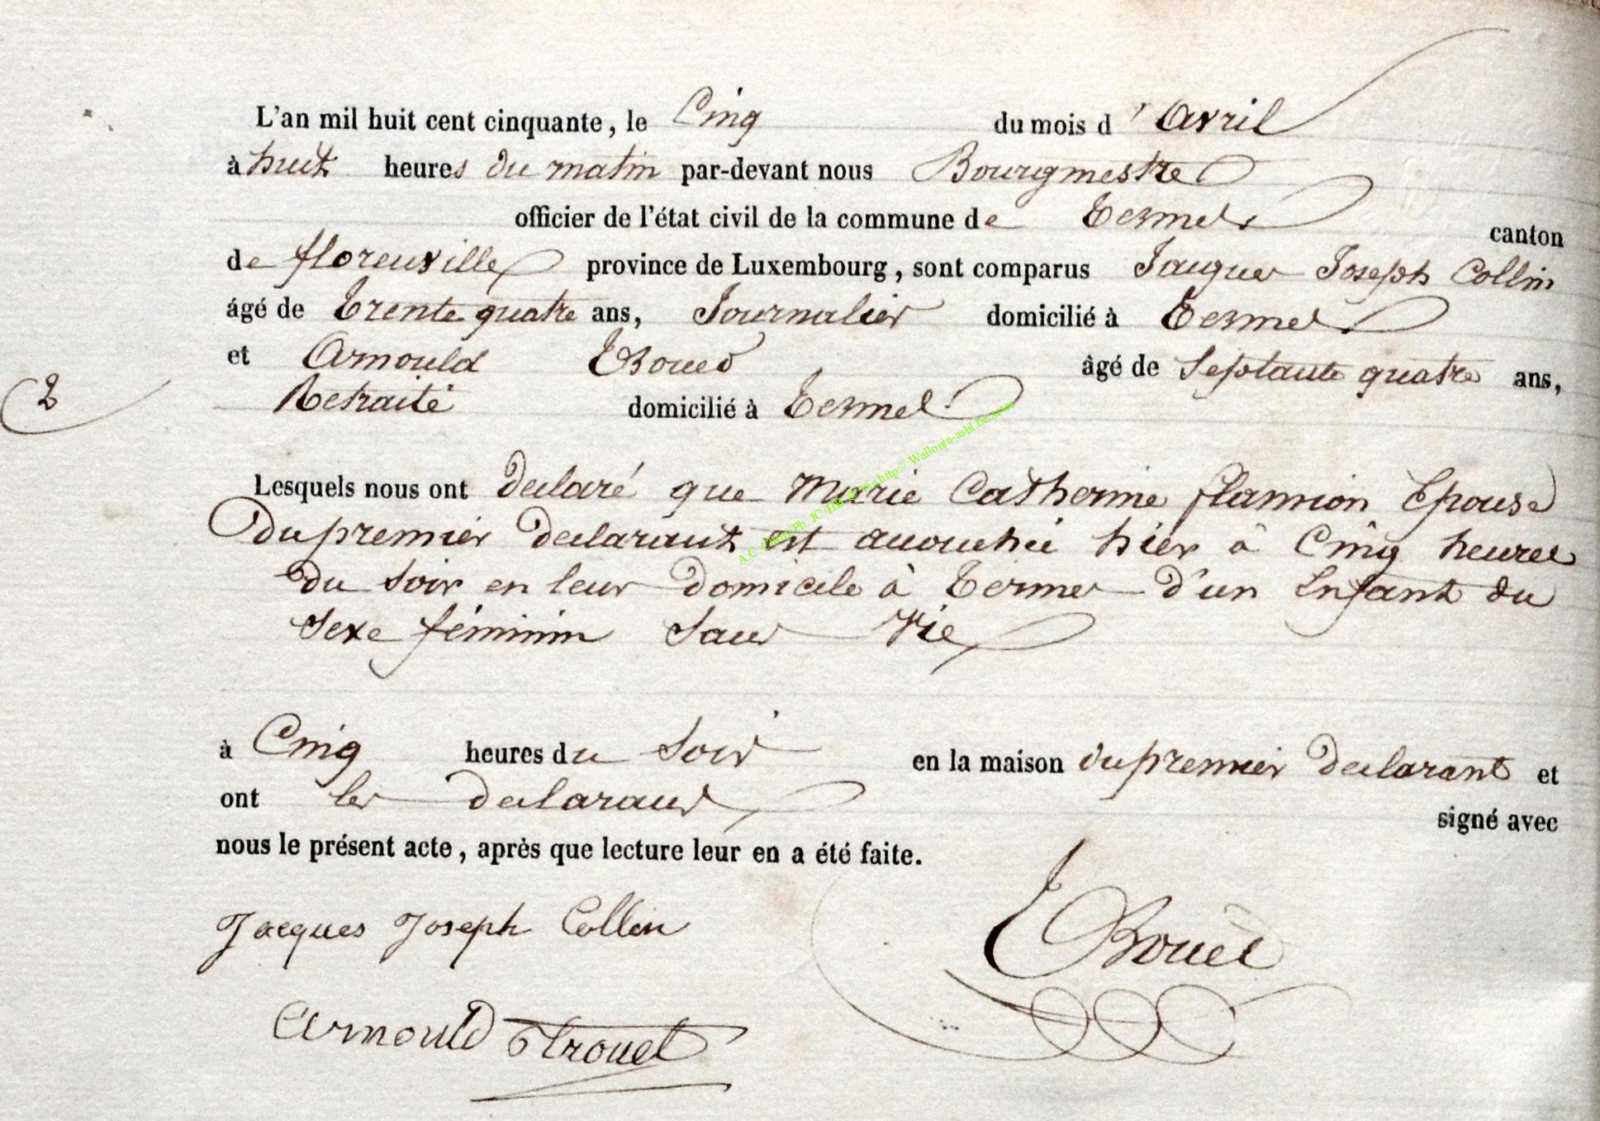 L'an mil huit cent cinquante, le Cinq du mois d'Avril
à huit heures du matin par-devant nous Bourgmestre
officier de l'état civil de la commune de Termes canton
de florenville province de Luxembourg, sont comparus Jacques Joseph Collin
âgé de trente quatre ans, Journalier domicilié à Termes
et Arnould âgé de Septante quatre ans,
2
Retraité domicilié à Termes
Lesquels nous ont déclaré que Marie Catherine flamion Epouse
du premier declarant est accouchée hier à Cinq heures
du Soir en leur domicile à Termes d'un Enfant du
Sexe féminin Sans Vie
à Cinq heures du Soir en la maison du premier declarant et
ont les declarans signé avec
nous le présent acte, après que lecture leur en a été faite.
Jacques Joseph Collin
Arnould